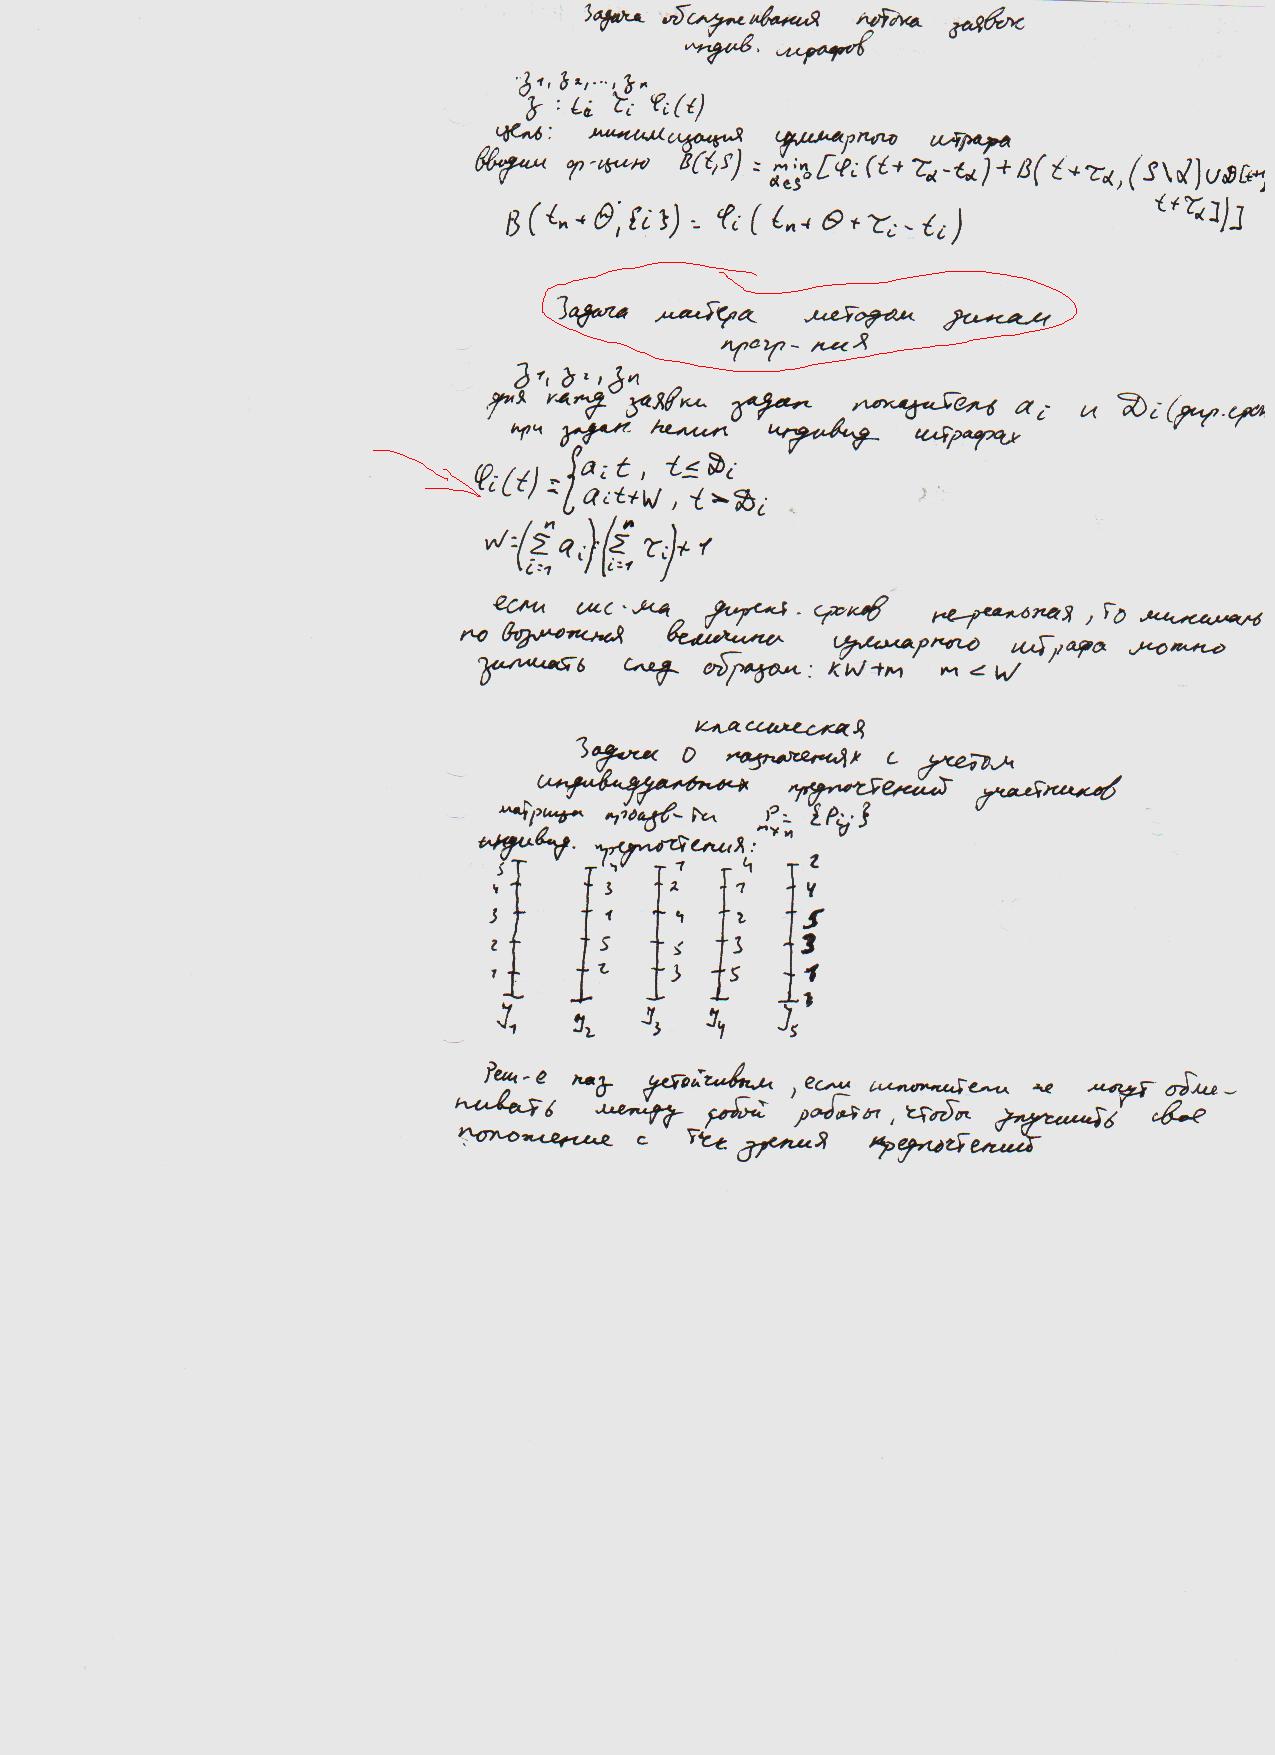 Задача обслуживания потока заявок
индив. штрафов
z₁, z₂, ..., zₙ
z : tᵢ τᵢ φᵢ(t)
цель: минимизация суммарного штрафа
вводим ф-цию B(t,S) = min α∈S [φᵢ(t+τα-tα)+B(t+τα,(S\α)∪D[t+1,
t+τα])]
B(tₙ+Θ,{i}) = φᵢ(tₙ+Θ+τᵢ-tᵢ)
Задача мастера методом динам
прогр-ния
z₁, z₂, zₙ
для кажд заявки задан показатель aᵢ и Dᵢ(дир.срок
при задан. индивид штрафах
φᵢ(t) = { aᵢt, t≤Dᵢ
aᵢt+W, t>Dᵢ
W=(∑ⁿᵢ₌₁ aᵢ)·(∑ⁿᵢ₌₁ τᵢ)+1
если сис-ма директ. сроков не реальная, то минималь
но возможная величина суммарного штрафа можно
записать след образом: kW+m m<W
классическая
Задача о назначениях с учетом
индивидуальных предпочтений участников
матрица произв-ти P = {Pᵢⱼ}
n×n
индивид. предпочтения:
5 4 1 4 2
4 3 2 1 4
3 1 4 2 5
2 5 5 3 3
1 2 3 5 1
У₁ У₂ У₃ У₄ У₅
Реш-е наз устойчивым, если исполнители не могут обме-
нивать между собой работы, чтобы улучшить свое
положение с тчк зрения предпочтений